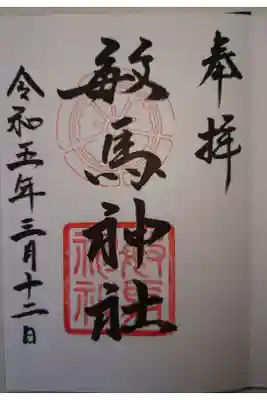 奉拝
敏馬神社
令和五年三月十二日